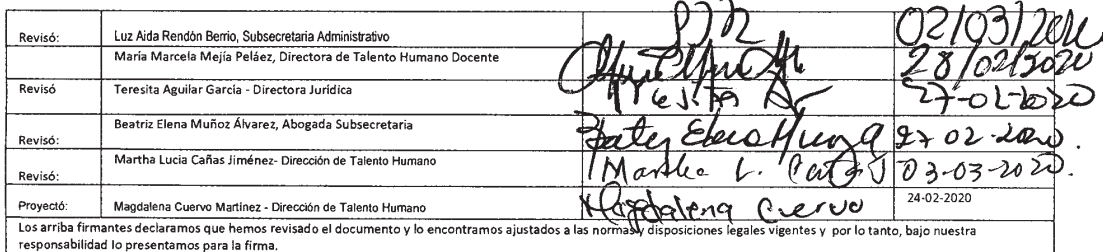 Revisó: Luz Aida Rendón Berrio, Subsecretaria Administrativo 02/03/2020
María Marcela Mejía Peláez, Directora de Talento Humano Docente 28/02/2020
Revisó Teresita Aguilar García - Directora Jurídica Teresita 27-02-2020
Revisó: Beatriz Elena Muñoz Álvarez, Abogada Subsecretaria Beatriz Elena Muñoz A 27 02-2020.
Revisó: Martha Lucia Cañas Jiménez- Dirección de Talento Humano Martha L. Cañas J 03-03-2020.
Proyectó: Magdalena Cuervo Martinez - Dirección de Talento Humano Magdalena Cuervo 24-02-2020
Los arriba firmantes declaramos que hemos revisado el documento y lo encontramos ajustados a las normas y disposiciones legales vigentes y por lo tanto, bajo nuestra
responsabilidad lo presentamos para la firma.